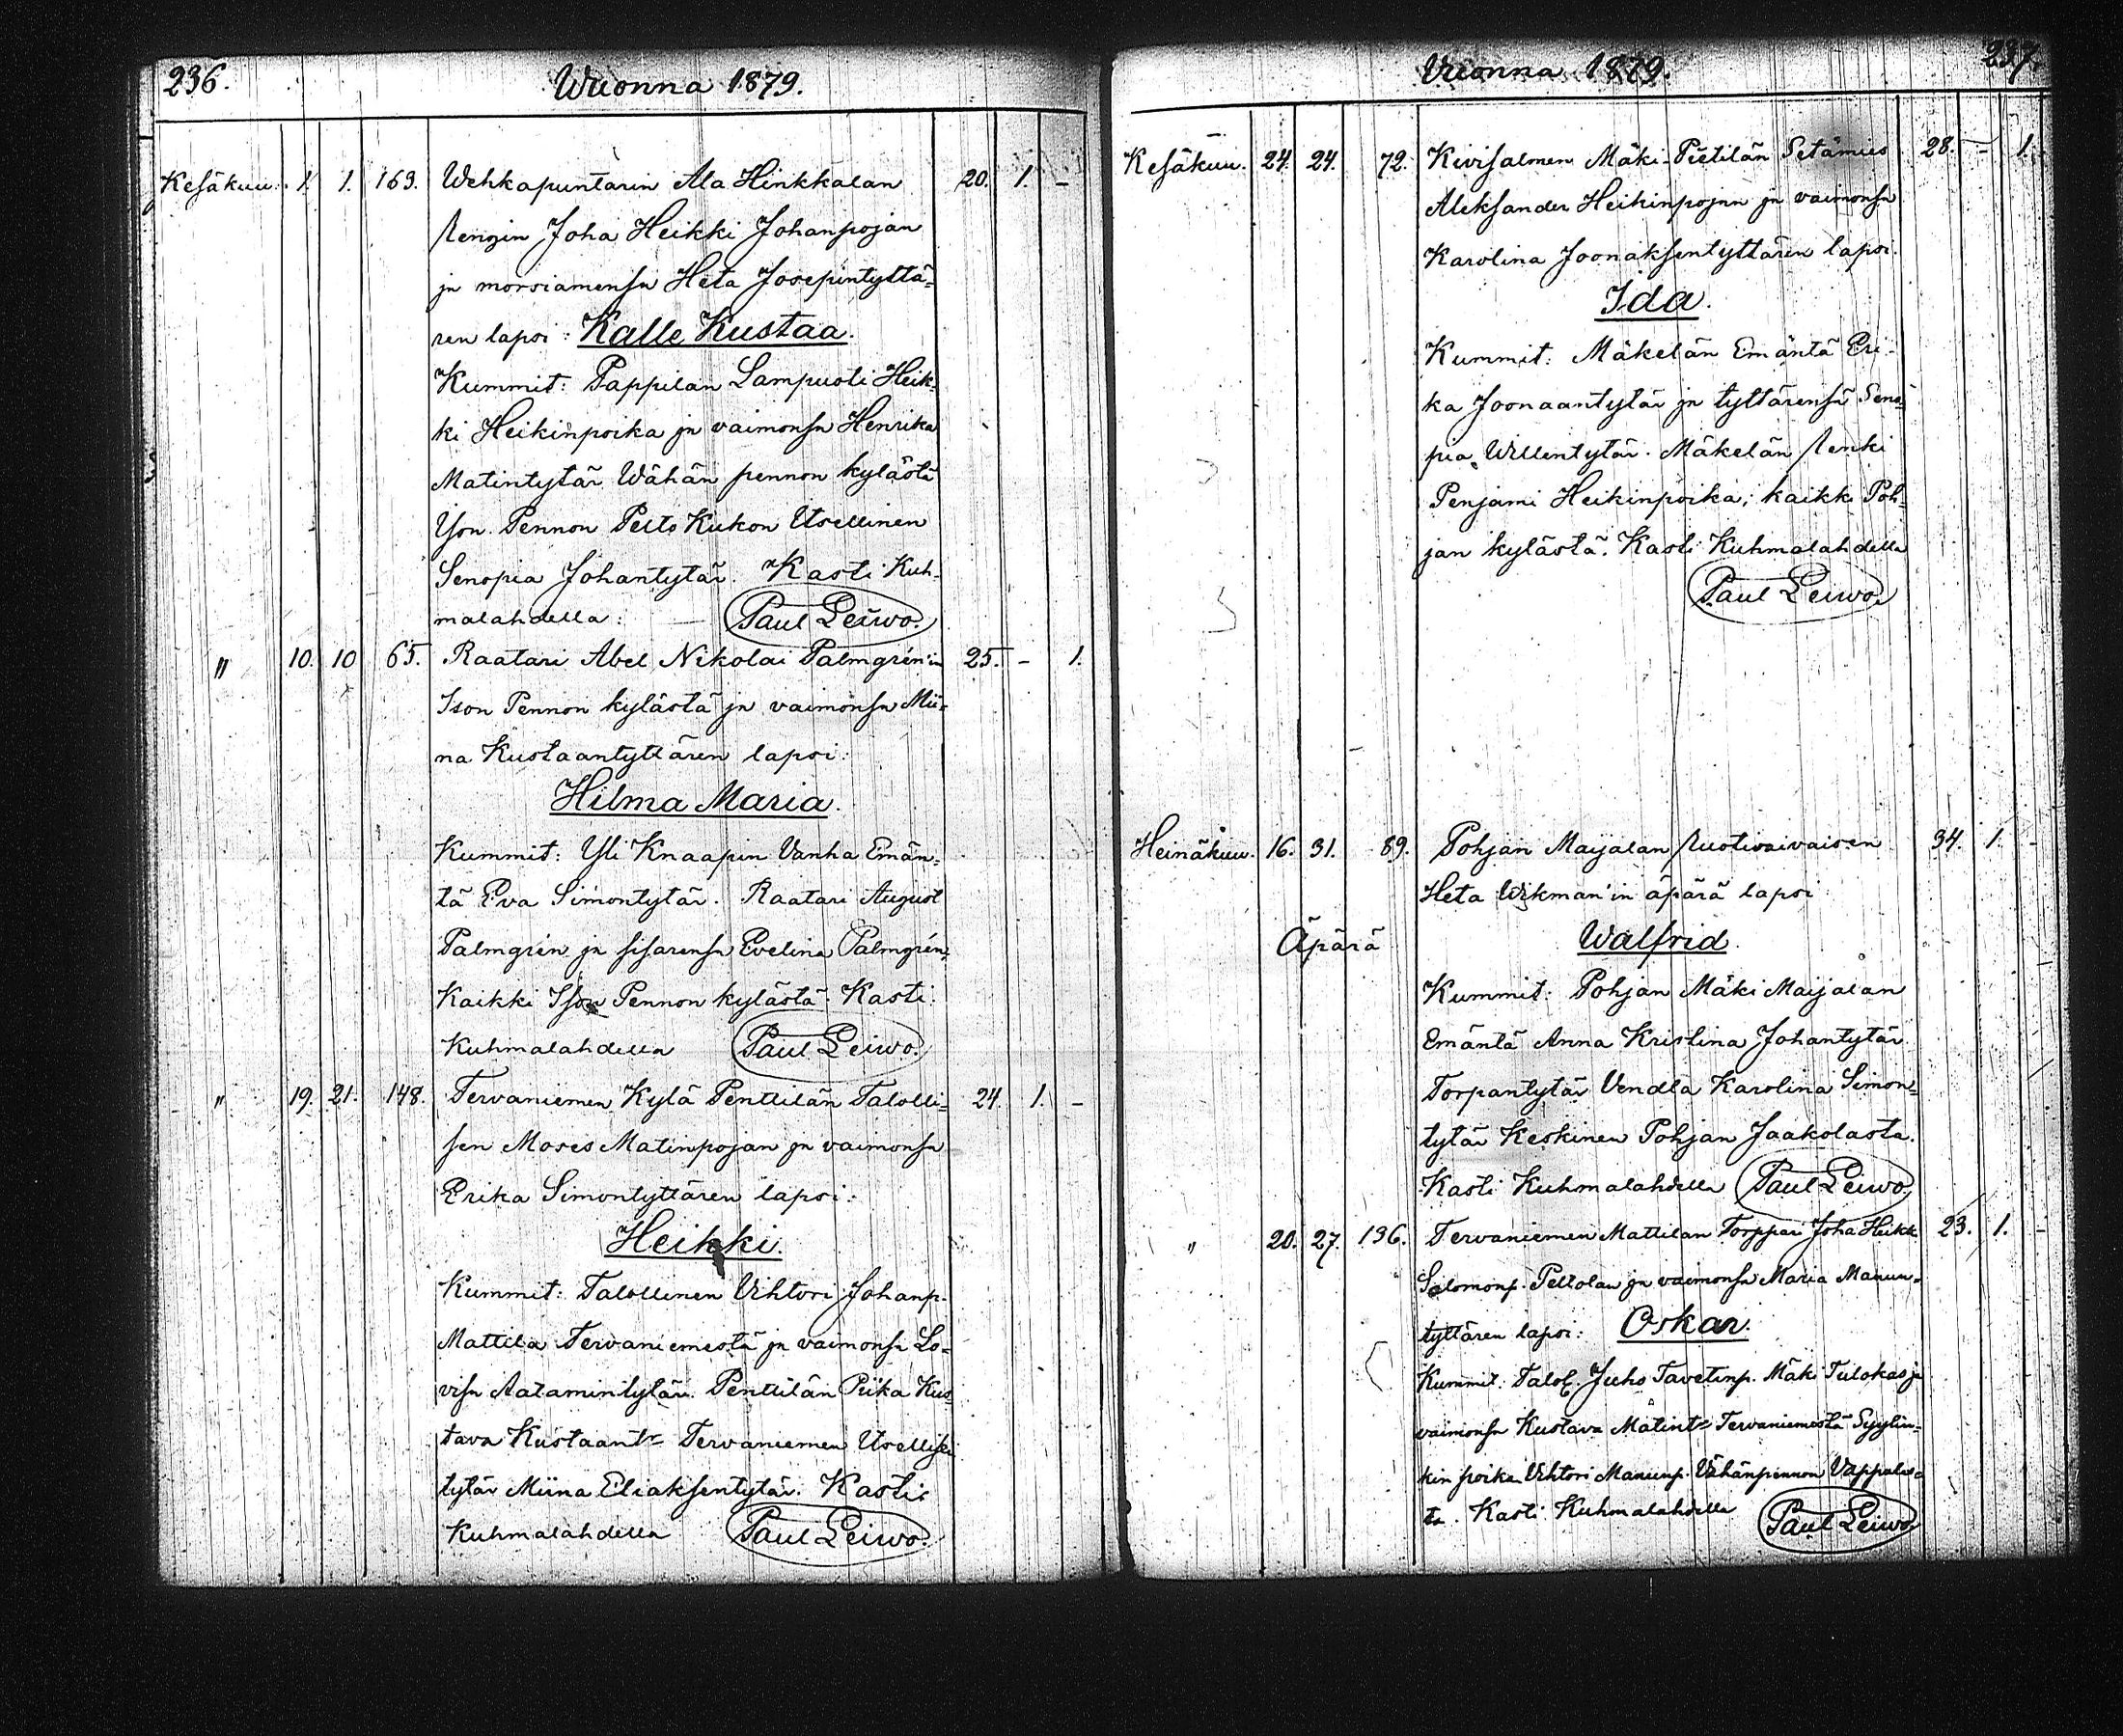 236.
Wuonna 1879.
Kesäkuu. 1. 1. 163. Wehkapuntarin Ala Hinkkalan 20. 1. -
Rengin Joha Heikki Johanpojan
ja morsiamensa Heta Josepintyttä-
ren lapsi: Kalle Kustaa.
Kummit: Pappilan Lampuoti Heik-
ki Heikinpoika ja vaimonsa Henrika
Matintytär Wähän pennon kylästä
Yson Pennon Pelto Kukon Itsellinen
Senopia Johantytär. Kasti Kuh-
malahdella: Paul Leiwo.
" 10. 10 65. Raatari Abel Nikolai Palmgrén'in 25. - 1.
Ison Pennon kylästä ja vaimonsa Mii-
na Kustaantyttären lapsi:
Hilma Maria.
Kummit: Yli Knaapin Vanha Emän-
tä Eva Simontytär. Raatari August
Palmgrén ja sisarensa Evelina Palmgrén,
Kaikki Ison Pennon kylästä. Kasti
Kuhmalahdella Paul Leiwo.
" 19. 21. 148. Tervaniemen Kylä Penttilän Talolli- 24. 1. -
sen Moses Matinpojan ja vaimonsa
Erika Simontyttären lapsi:
Heikki.
Kummit: Talollinen Vihtori Johanp.
Mattila Tervaniemestä ja vaimonsa Lo-
visa Aatamintytär. Penttilän Piika Kus-
tava Kustaant= Tervaniemen Itsellisen
tytär Miina Eliaksentytär. Kasti:
Kuhmalahdella Paul Leiwo.
237.
Vuonna 1879.
Kesäkuu. 24. 24. 72. Kivisalmen Mäki-Pietilän Setämies 28. - 1.
Aleksander Heikinpojan ja vaimonsa
Karolina Joonaksentyttären lapsi.
Ida.
Kummit: Mäkelän Emäntä Eri-
ka Joonaantytär ja tyttärensä Seno-
pia Willentytär. Mäkelän Renki
Penjami Heikinpoika; kaikki Poh-
jan kylästä. Kasti Kuhmalahdella
Paul Leiwo.
Heinäkuu. 16. 31. 89. Pohjan Maijalan Ruotivaivaisen 34. 1. -
Heta Wikman'in äpärä lapsi
Äpärä Walfrid.
Kummit: Pohjan Mäki Maijalan
Emäntä Anna Kristina Johantytär
Torpantytär Vendla Karolina Simon-
tytär Keskinen Pohjan Jaakolasta.
Kasti Kuhmalahdella Paul Leiwo.
" 20. 27. 136. Tervaniemen Mattilan Torppari Joha Heikki 23. 1. -
Salomonp. Peltolan ja vaimonsa Maria Manun-
tyttären lapsi: Oskar.
Kummit: Talol. Juho Tavetinp. Mäki Tulokas ja
vaimonsa Kustava Matint= Tervaniemestä
kin poika Vihtori Manunp. Vähänpennon
ta. Kasti Kuhmalahdella Paul Leiwo.